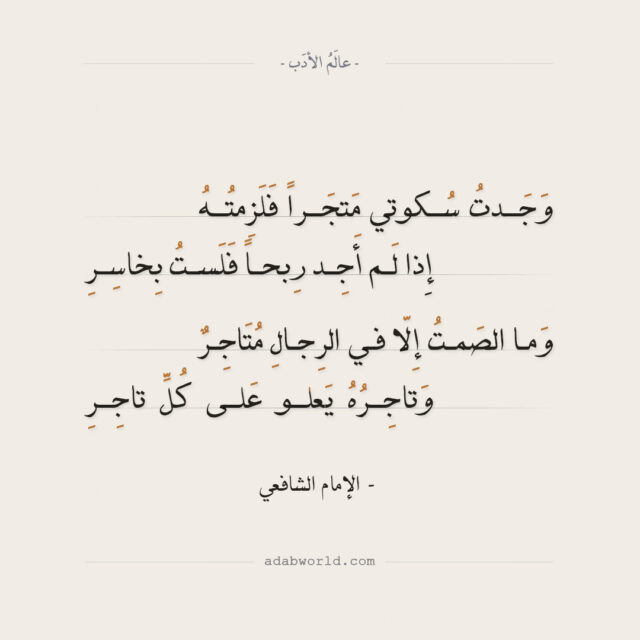 - عالَمُ الأدَب -
وَجَدتُ سُكوتي مَتجَراً فَلَزِمتُهُ
إِذا لَم أَجِد رِبحاً فَلَستُ بِخاسِرِ
وَما الصَمتُ إِلّا في الرِجالِ مُتَاجِرٌ
وَتاجِرُهُ يَعلو عَلى كُلِّ تاجِرِ
- الإمام الشافعي
adabworld.com